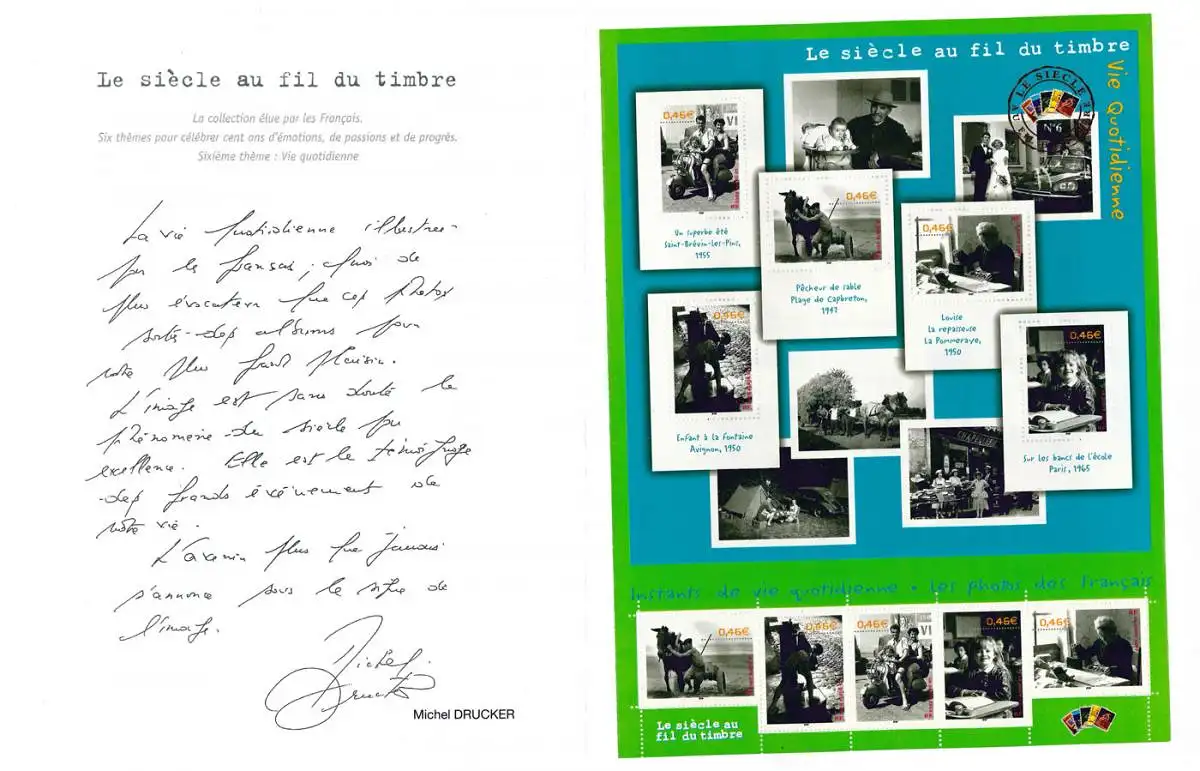 Le siècle au fil du timbre
La collection élue par les Français.
Six thèmes pour célébrer cent ans d'émotions, de passions et de progrès.
Sixième thème : Vie quotidienne
La vie quotidienne illustrée
par les français ; quoi de
plus évocateur que ces photos
sorties des albums pour
notre plus grand plaisir.
L'image est sans doute le
phénomène du siècle par
excellence. Elle est le témoignage
des grands événements de
notre vie.
L'avenir plus que jamais
s'annonce sous le signe de
l'image.
Michel Drucker
Michel DRUCKER
Le siècle au fil du timbre
Vie Quotidienne
LE SIECLE AU
N°6
0,46€
Un superbe été
Saint-Brévin-les-Pins,
1955
0,46€
Pêcheur de sable
Plage de Capbreton,
1957
0,46€
Louise
La repasseuse
La Pommeraye,
1950
0,46€
Enfant à la fontaine
Avignon, 1950
0,46€
Sur les bancs de l'école
Paris, 1965
Instants de vie quotidienne • Les photos des Français
0,46€
0,46€
0,46€
0,46€
0,46€
Le siècle au
fil du timbre